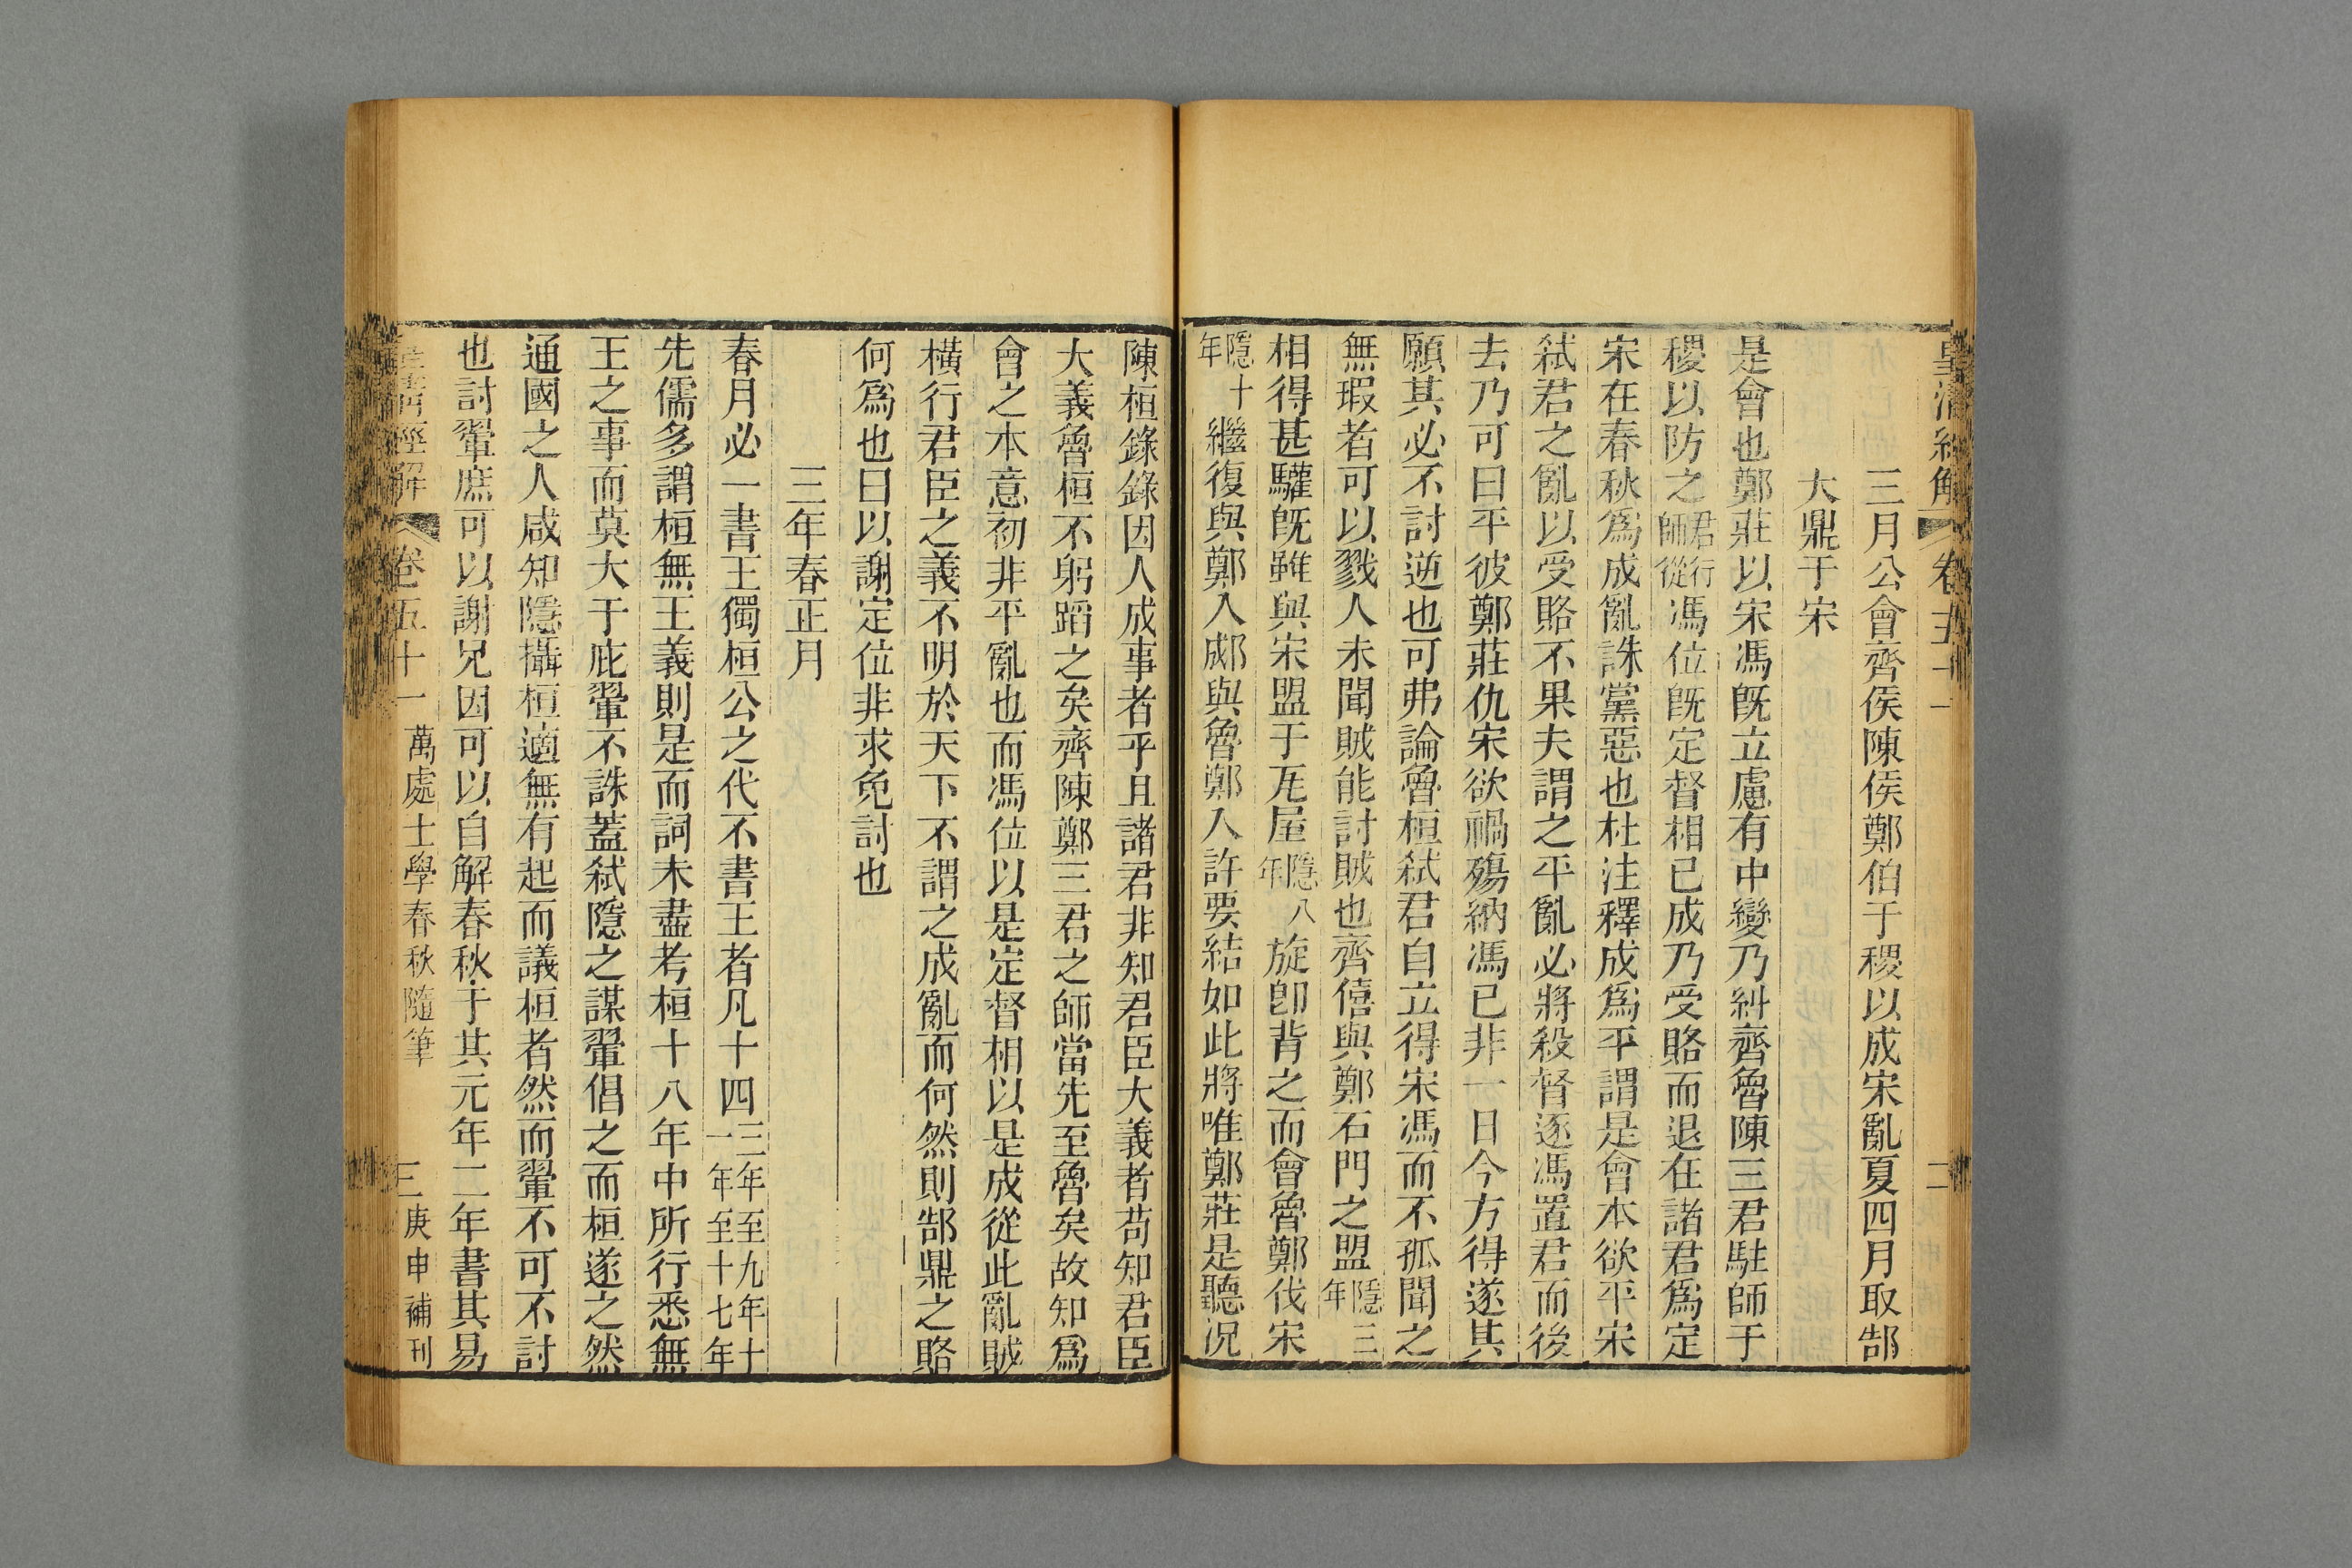 皇清經解 卷五十一 二
三月公會齊侯陳侯鄭伯于稷以成宋亂夏四月取郜
大鼎于宋
是會也鄭莊以宋馮旣立慮有中變乃糾齊魯陳三君駐師于
稷以防之君行師從馮位旣定督相已成乃受賂而退在諸君爲定
宋在春秋爲成亂誅黨惡也杜注釋成爲平謂是會本欲平宋
弑君之亂以受賂不果夫謂之平亂必將殺督逐馮置君而後
去乃可曰平彼鄭莊仇宋欲禍殤納馮已非一日今方得遂其
願其必不討逆也可弗論魯桓弑君自立得宋馮而不孤聞之
無瑕者可以戮人未聞賊能討賊也齊僖與鄭石門之盟隱三年
相得甚驩旣雖與宋盟于瓦屋隱八年旋卽背之而會魯鄭伐宋
隱十年繼復與鄭入郕與魯鄭入許要結如此將唯鄭莊是聽况
陳桓錄錄因人成事者乎且諸君非知君臣大義者苟知君臣
大義魯桓不躬蹈之矣齊陳鄭三君之師當先至魯矣故知爲
會之本意初非平亂也而馮位以是定督相以是成從此亂賊
橫行君臣之義不明於天下不謂之成亂而何然則郜鼎之賂
何爲也曰以謝定位非求免討也
三年春正月
春月必一書王獨桓公之代不書王者凡十四三年至九年十一年至十七年
先儒多謂桓無王義則是而詞未盡考桓十八年中所行悉無
王之事而莫大于庇翬不誅蓋弑隱之謀翬倡之而桓遂之然
通國之人咸知隱攝桓適無有起而議桓者然而翬不可不討
也討翬庶可以謝兄因可以自解春秋于其元年二年書其易
皇清經解 卷五十一 萬處士學春秋隨筆 三 庚申補刊